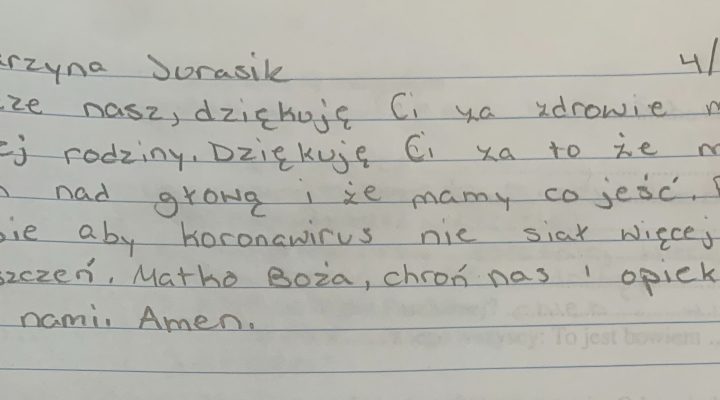 rzyna Jurasik 4/
ze nasz, dziękuję Ci za zdrowie
ej rodziny. Dziękuję Ci za to że
nad głową i że mamy co jeść.
ie aby koronawirus nie siał więcej
szczeń. Matko Boża, chroń nas i opiek
nami. Amen.
To jest bowiem